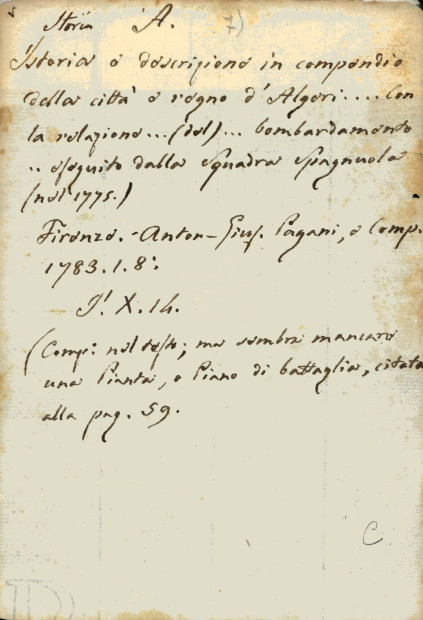 Storia A. 7)
Istoria e descrizione in compendio
della città e regno d'Algeri.... Con
la relazione... (del)... bombardamento
.. eseguito dalla Squadra Spagnuola
(nel 1775.)
Firenze. - Anton-Gius. Pagani, e Comp.
1783. 1. 8:
I. X. 14.
(Comp: nel testo; ma sembra mancare
una Pianta, o Piano di battaglia, citata
alla pag. 59.
C